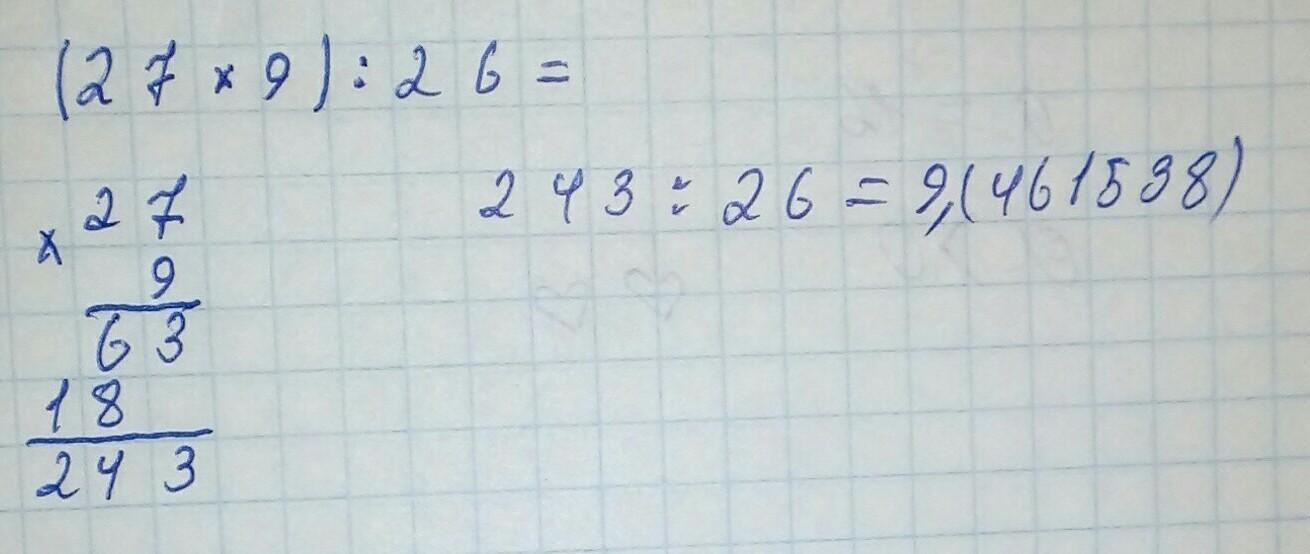 (27 × 9) : 26 =
× 27
9
63
18
243
243 : 26 = 9,(461538)